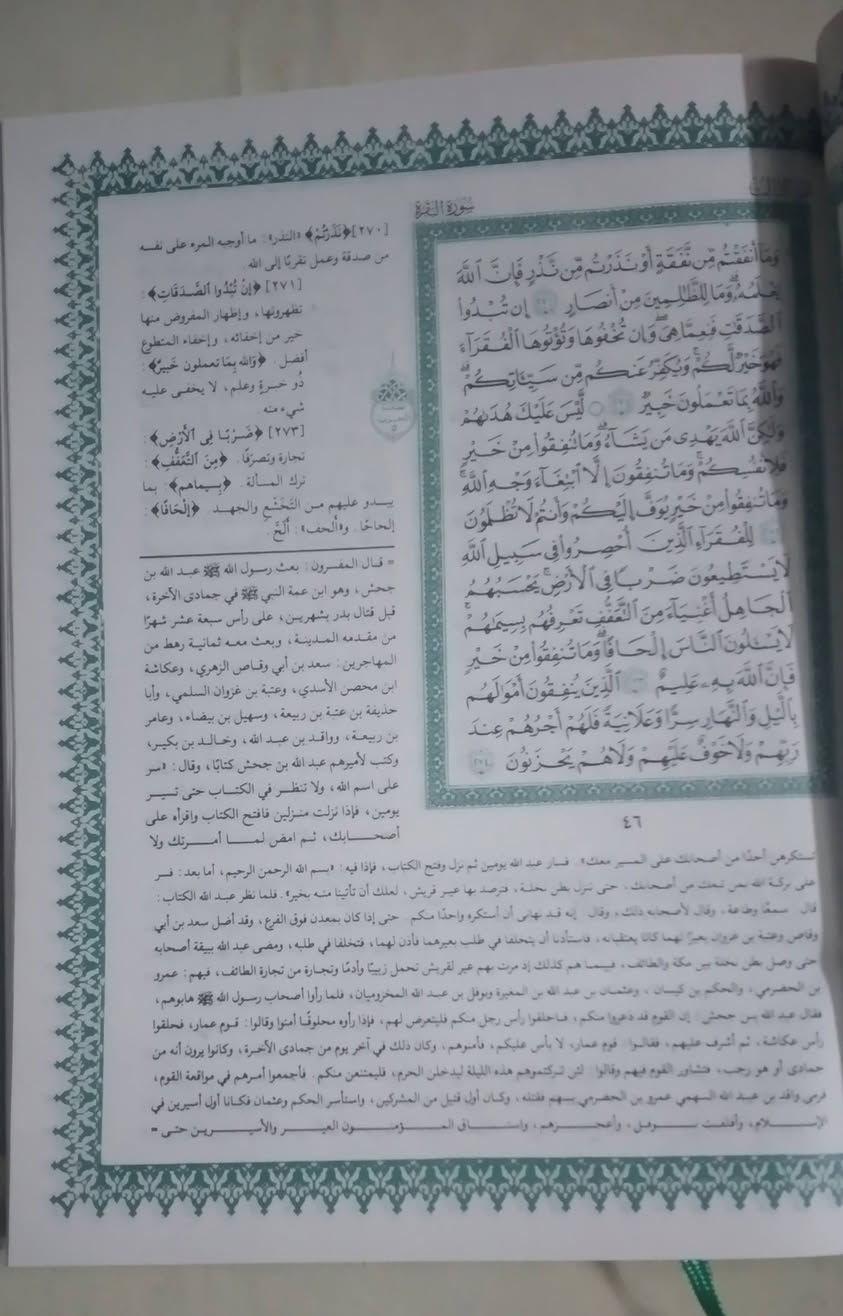 سورة البقرة
وَمَا أَنفَقْتُم مِّن نَّفَقَةٍ أَوْ نَذَرْتُم مِّن نَّذْرٍ فَإِنَّ ٱللَّهَ
يَعْلَمُهُۥ ۗ وَمَا لِلظَّٰلِمِينَ مِنْ أَنصَارٍ ٢٧٠ إِن تُبْدُوا۟
ٱلصَّدَقَٰتِ فَنِعِمَّا هِىَ ۖ وَإِن تُخْفُوهَا وَتُؤْتُوهَا ٱلْفُقَرَآءَ
فَهُوَ خَيْرٌ لَّكُمْ ۚ وَيُكَفِّرُ عَنكُم مِّن سَيِّـَٔاتِكُمْ ۗ
وَٱللَّهُ بِمَا تَعْمَلُونَ خَبِيرٌ ٢٧١ ۞ لَّيْسَ عَلَيْكَ هُدَىٰهُمْ
وَلَٰكِنَّ ٱللَّهَ يَهْدِى مَن يَشَآءُ ۗ وَمَا تُنفِقُوا۟ مِنْ خَيْرٍ
فَلِأَنفُسِكُمْ ۚ وَمَا تُنفِقُونَ إِلَّا ٱبْتِغَآءَ وَجْهِ ٱللَّهِ ۚ
وَمَا تُنفِقُوا۟ مِنْ خَيْرٍ يُوَفَّ إِلَيْكُمْ وَأَنتُمْ لَا تُظْلَمُونَ
٢٧٢ لِلْفُقَرَآءِ ٱلَّذِينَ أُحْصِرُوا۟ فِى سَبِيلِ ٱللَّهِ
لَا يَسْتَطِيعُونَ ضَرْبًا فِى ٱلْأَرْضِ يَحْسَبُهُمُ
ٱلْجَاهِلُ أَغْنِيَآءَ مِنَ ٱلتَّعَفُّفِ تَعْرِفُهُم بِسِيمَٰهُمْ
لَا يَسْـَٔلُونَ ٱلنَّاسَ إِلْحَافًا ۗ وَمَا تُنفِقُوا۟ مِنْ خَيْرٍ
فَإِنَّ ٱللَّهَ بِهِۦ عَلِيمٌ ٢٧٣ ٱلَّذِينَ يُنفِقُونَ أَمْوَٰلَهُم
بِٱلَّيْلِ وَٱلنَّهَارِ سِرًّا وَعَلَانِيَةً فَلَهُمْ أَجْرُهُمْ عِندَ
رَبِّهِمْ وَلَا خَوْفٌ عَلَيْهِمْ وَلَا هُمْ يَحْزَنُونَ ٢٧٤
٤٦
[٢٧٠] ﴿نَذَرْتُم﴾ «النذر»: ما أوجبه المرء على نفسه
من صدقة وعمل تقربًا إلى الله.
[٢٧١] ﴿إِن تُبْدُوا ٱلصَّدَقَاتِ﴾:
تظهرونها، وإظهار المفروض منها
خير من إخفائه، وإخفاء المتطوع
أفضل. ﴿وَالله بِمَا تعملون خَبيرٌ﴾:
ذُو خبرةٍ وعلم، لا يخفى عليه
شيء منه.
[٢٧٣] ﴿ضَرْبًا فِى ٱلْأَرْضِ﴾:
تجارة وتصرّفًا. ﴿مِنَ التَّعَفُّفِ﴾:
ترك المسألة. ﴿بِسِيماهم﴾: بما
يبدو عليهم من التَخَشُّع والجهد. ﴿إِلْحَافًا﴾:
إلحاحًا. و«ألحف»: ألَحَّ.
= قال المفسرون: بعث رسول الله ﷺ عبد الله بن
جحش، وهو ابن عمة النبي ﷺ في جمادى الآخرة،
قبل قتال بدر بشهرين، على رأس سبعة عشر شهرًا
من مقدمه المدينة، وبعث معه ثمانية رهط من
المهاجرين: سعد بن أبي وقاص الزهري، وعكاشة
ابن محصن الأسدي، وعتبة بن غزوان السلمي، وأبا
حذيفة بن عتبة بن ربيعة، وسهيل بن بيضاء، وعامر
بن ربيعة، وواقد بن عبد الله، وخالد بن بكير،
وكتب لأميرهم عبد الله بن جحش كتابًا، وقال: «سر
على اسم الله، ولا تنظر في الكتاب حتى تسير
يومين، فإذا نزلت منزلين فافتح الكتاب واقرأه على
أصحابك، ثم امض لما أمرتك ولا
تستكرهن أحدًا من أصحابك على المسير معك». فسار عبد الله يومين ثم نزل وفتح الكتاب، فإذا فيه: «بسم الله الرحمن الرحيم، أما بعد: فسر
على بركة الله بمن تبعك من أصحابك، حتى تنزل بطن نخلة، فترصد بها عير قريش، لعلك أن تأتينا منه بخير». فلما نظر عبد الله الكتاب:
قال: سمعًا وطاعة، وقال لأصحابه ذلك، وقال: إنه قد نهاني أن أستكره واحدًا منكم. حتى إذا كان بمعدن فوق الفرع، وقد أضل سعد بن أبي
وقاص وعتبة بن غزوان بعيرًا لهما كانا يعتقبانه، فاستأذنا أن يتخلفا في طلب بعيرهما فأذن لهما، فتخلفا في طلبه، ومضى عبد الله ببقية أصحابه
حتى وصل بطن نخلة بين مكة والطائف، فبينما هم كذلك إذ مرت بهم عير لقريش تحمل زبيبًا وأدمًا وتجارة من تجارة الطائف، فيهم: عمرو
بن الحضرمي، والحكم بن كيسان، وعثمان بن عبد الله بن المغيرة ونوفل بن عبد الله المخزوميان، فلما رأوا أصحاب رسول الله ﷺ هابوهم،
فقال عبد الله بن جحش: إن القوم قد ذعروا منكم، فاحلقوا رأس رجل منكم فليتعرض لهم، فإذا رأوه محلوقًا أمنوا وقالوا: قوم عمار، فحلقوا
رأس عكاشة، ثم أشرف عليهم، فقالوا: قوم عمار، لا بأس عليكم، فأمنوهم، وكان ذلك في آخر يوم من جمادى الآخرة، وكانوا يرون أنه من
جمادى أو هو رجب، فتشاور القوم فيهم وقالوا: لئن تركتموهم هذه الليلة ليدخلن الحرم، فليمتنعن منكم. فأجمعوا أمرهم في مواقعة القوم،
فرمى واقد بن عبد الله السهمي عمرو بن الحضرمي بسهم فقتله، وكان أول قتيل من المشركين، واستأسر الحكم وعثمان فكانا أول أسيرين في
الإسلام، وأفلت نوفل، وأعجزهم، واستاق المؤمنون العير والأسيرين حتى =